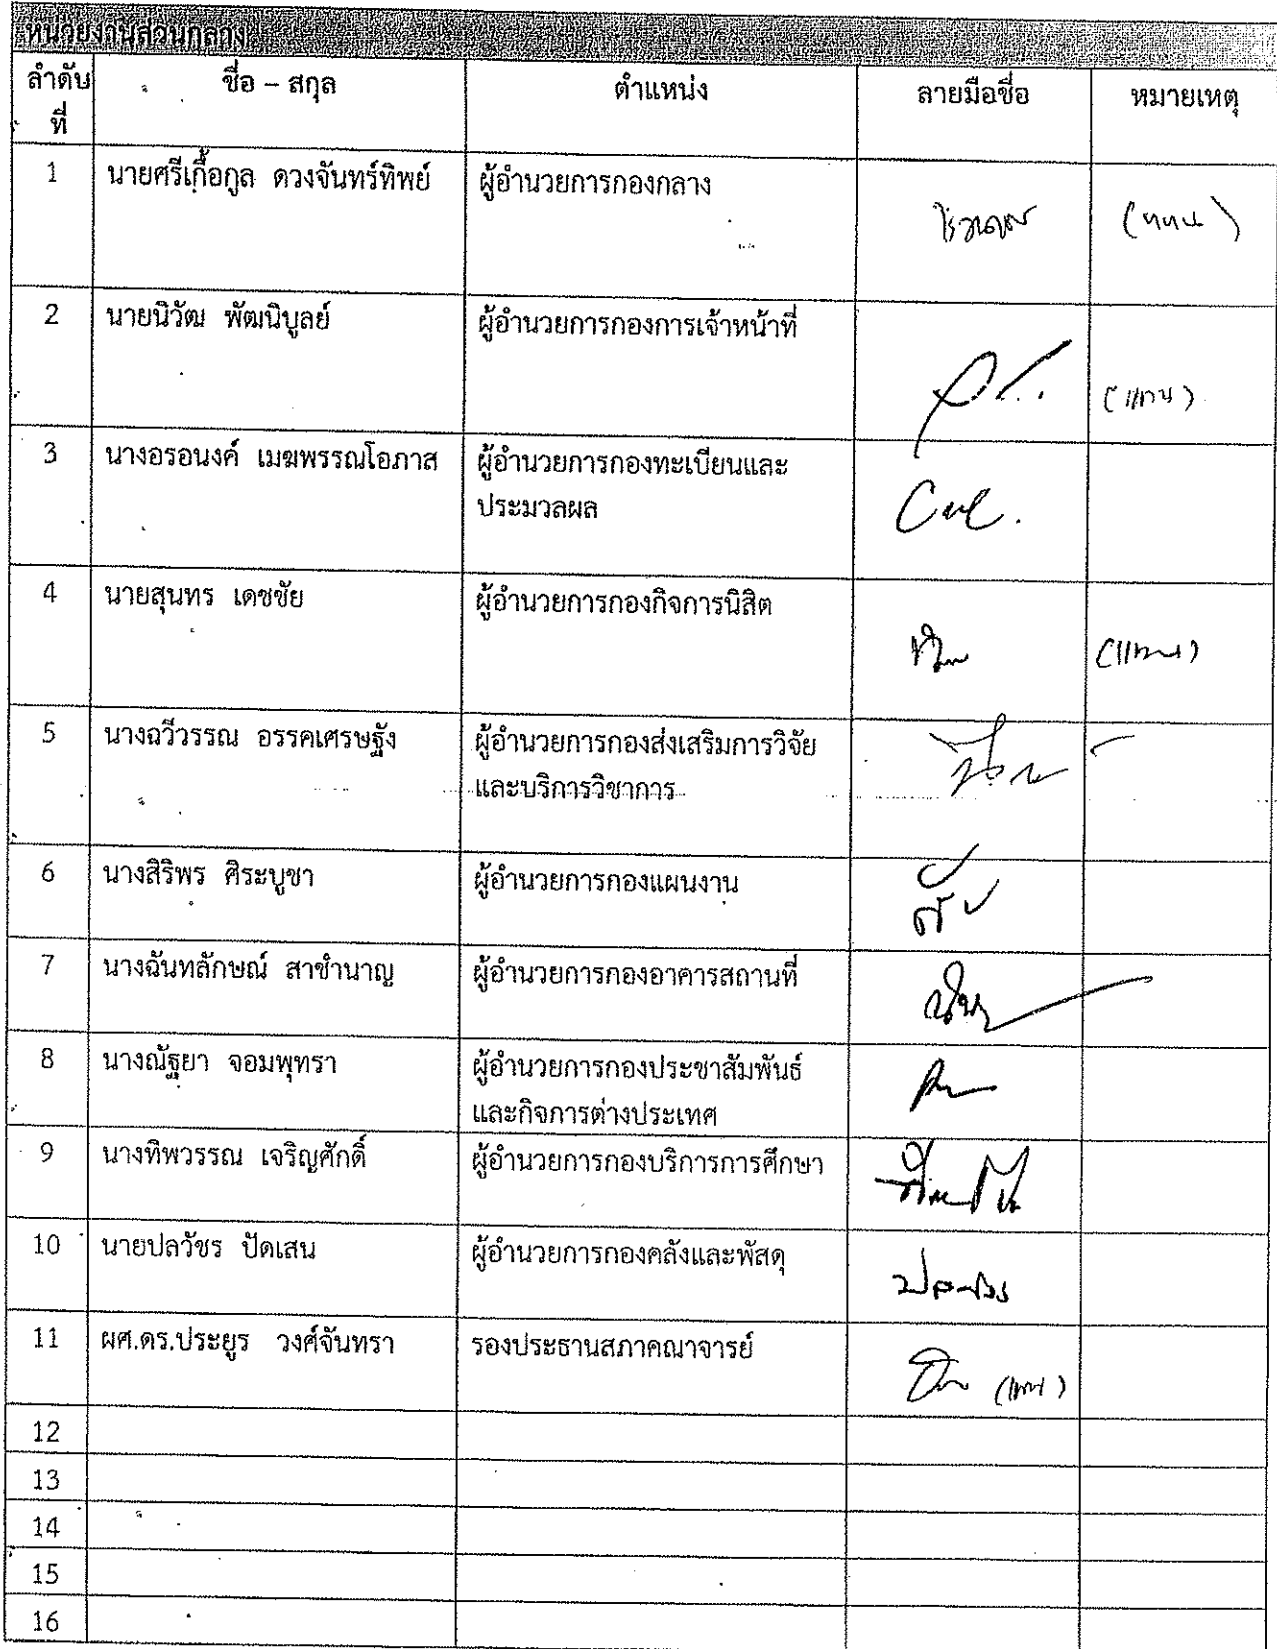 หน่วยงานส่วนกลาง
ลำดับที่ ชื่อ – สกุล ตำแหน่ง ลายมือชื่อ หมายเหตุ
1 นายศรีเกื้อกูล ดวงจันทร์ทิพย์ ผู้อำนวยการกองกลาง (แทน)
2 นายนิวัฒ พัฒนิบูลย์ ผู้อำนวยการกองการเจ้าหน้าที่ (แทน)
3 นางอรอนงค์ เมฆพรรณโอภาส ผู้อำนวยการกองทะเบียนและ
ประมวลผล
4 นายสุนทร เดชชัย ผู้อำนวยการกองกิจการนิสิต (แทน)
5 นางฉวีวรรณ อรรคเศรษฐัง ผู้อำนวยการกองส่งเสริมการวิจัย
และบริการวิชาการ
6 นางสิริพร ศิระบูชา ผู้อำนวยการกองแผนงาน
7 นางฉันทลักษณ์ สาชำนาญ ผู้อำนวยการกองอาคารสถานที่
8 นางณัฐยา จอมพุทรา ผู้อำนวยการกองประชาสัมพันธ์
และกิจการต่างประเทศ
9 นางทิพวรรณ เจริญศักดิ์ ผู้อำนวยการกองบริการการศึกษา
10 นายปลวัชร ปัดเสน ผู้อำนวยการกองคลังและพัสดุ
11 ผศ.ดร.ประยูร วงศ์จันทรา รองประธานสภาคณาจารย์ (แทน)
12
13
14
15
16